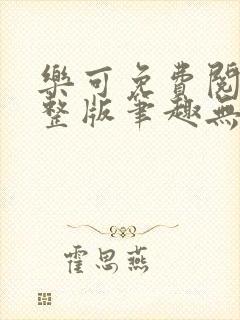 樂可免費閱
整版筆趣無
霍思燕